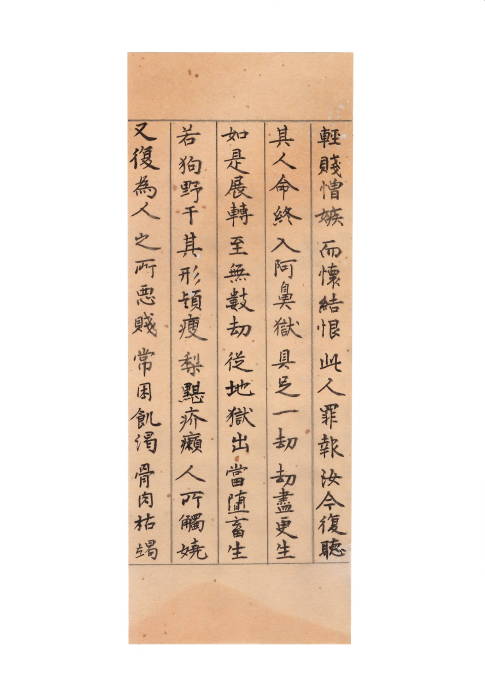 輕賤憎嫉 而懷結恨 此人罪報 汝今復聽
其人命終 入阿鼻獄 具足一劫 劫盡更生
如是展轉 至無數劫 從地獄出 當墮畜生
若狗野干 其形頷瘦 梨黮疥癩 人所觸嬈
又復為人 之所惡賤 常困飢渴 骨肉枯竭